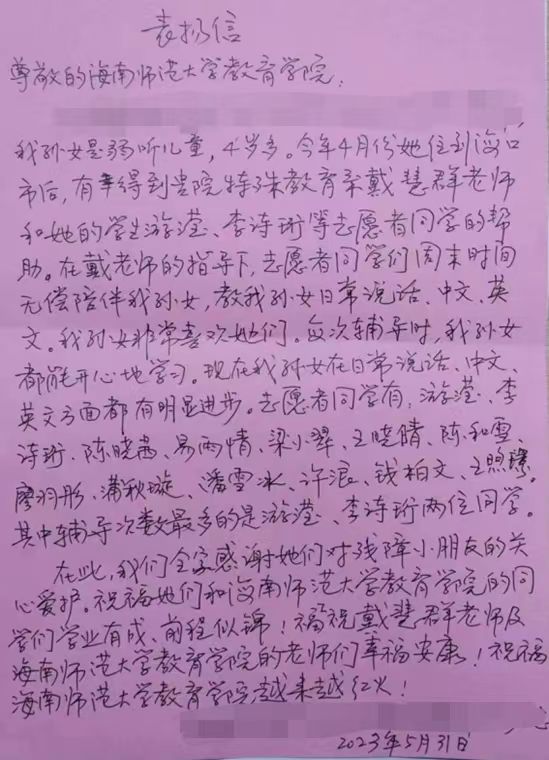 表扬信
尊敬的海南师范大学教育学院:
我孙女是弱听儿童,4岁多。今年4月份她住到海口
市后,有幸得到贵院特殊教育系戴慧群老师
和她的学生游滢、李诗珩等志愿者同学的帮
助。在戴老师的指导下,志愿者同学们周末时间
无偿陪伴我孙女,教我孙女日常说话、中文、英
文。我孙女非常喜欢她们。每次辅导时,我孙女
都能开心地学习。现在我孙女在日常说话、中文、
英文方面都有明显进步。志愿者同学有:游滢、李
诗珩、陈晓茜、易雨情、梁小翠、王晓晴、陈和雪、
廖羽彤、蒲秋璇、潘雪冰、许混、钱柏文、王煦
其中辅导次数最多的是游滢、李诗珩两位同学。
在此,我们全家感谢她们对残障小朋友的关
心爱护。祝福她们和海南师范大学教育学院的同
学们学业有成、前程似锦!福祝戴慧群老师及
海南师范大学教育学院的老师们幸福安康!祝福
海南师范大学教育学院越来越红火!
2023年5月31日